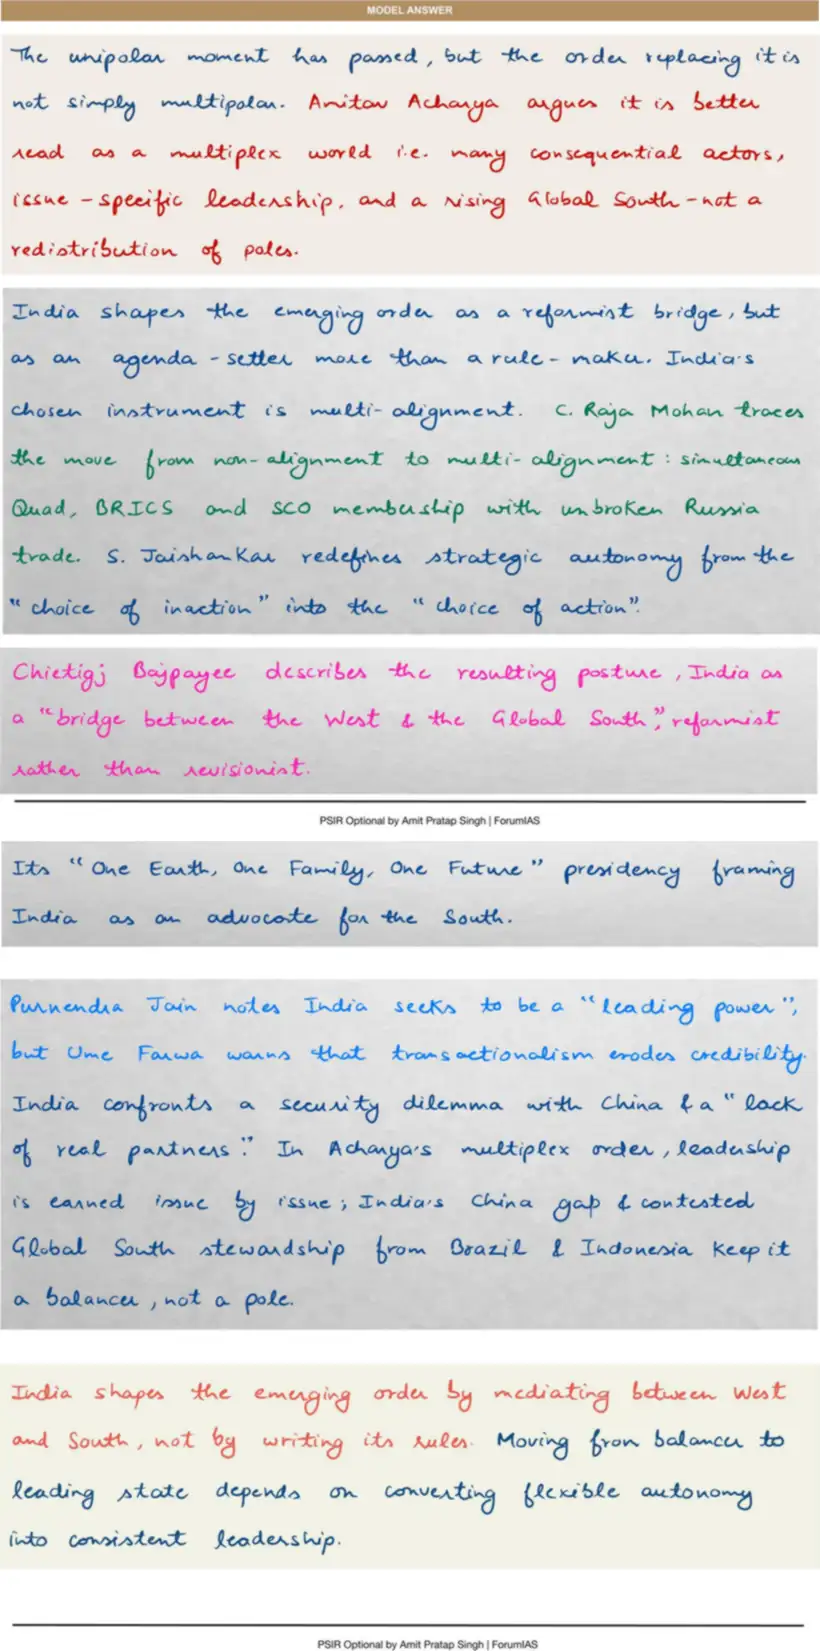 MODEL ANSWER
The unipolar moment has passed, but the order replacing it is
not simply multipolar. Amitav Acharya argues it is better
read as a multiplex world i.e. many consequential actors,
issue-specific leadership, and a rising Global South - not a
redistribution of poles.
India shapes the emerging order as a reformist bridge, but
as an agenda-setter more than a rule-maker. India's
chosen instrument is multi-alignment. C. Raja Mohan traces
the move from non-alignment to multi-alignment: simultaneous
Quad, BRICS and SCO membership with unbroken Russia
trade. S. Jaishankar redefines strategic autonomy from the
"choice of inaction" into the "choice of action".
Chietigj Bajpayee describes the resulting posture, India as
a "bridge between the West & the Global South", reformist
rather than revisionist.
PSIR Optional by Amit Pratap Singh | ForumIAS
Its "One Earth, One Family, One Future" presidency framing
India as an advocate for the South.
Purnendra Jain notes India seeks to be a "leading power",
but Ume Farwa warns that transactionalism erodes credibility.
India confronts a security dilemma with China & a "lack
of real partners." In Acharya's multiplex order, leadership
is earned issue by issue; India's China gap & contested
Global South stewardship from Brazil & Indonesia keep it
a balancer, not a pole.
India shapes the emerging order by mediating between West
and South, not by writing its rules. Moving from balancer to
leading state depends on converting flexible autonomy
into consistent leadership.
PSIR Optional by Amit Pratap Singh | ForumIAS